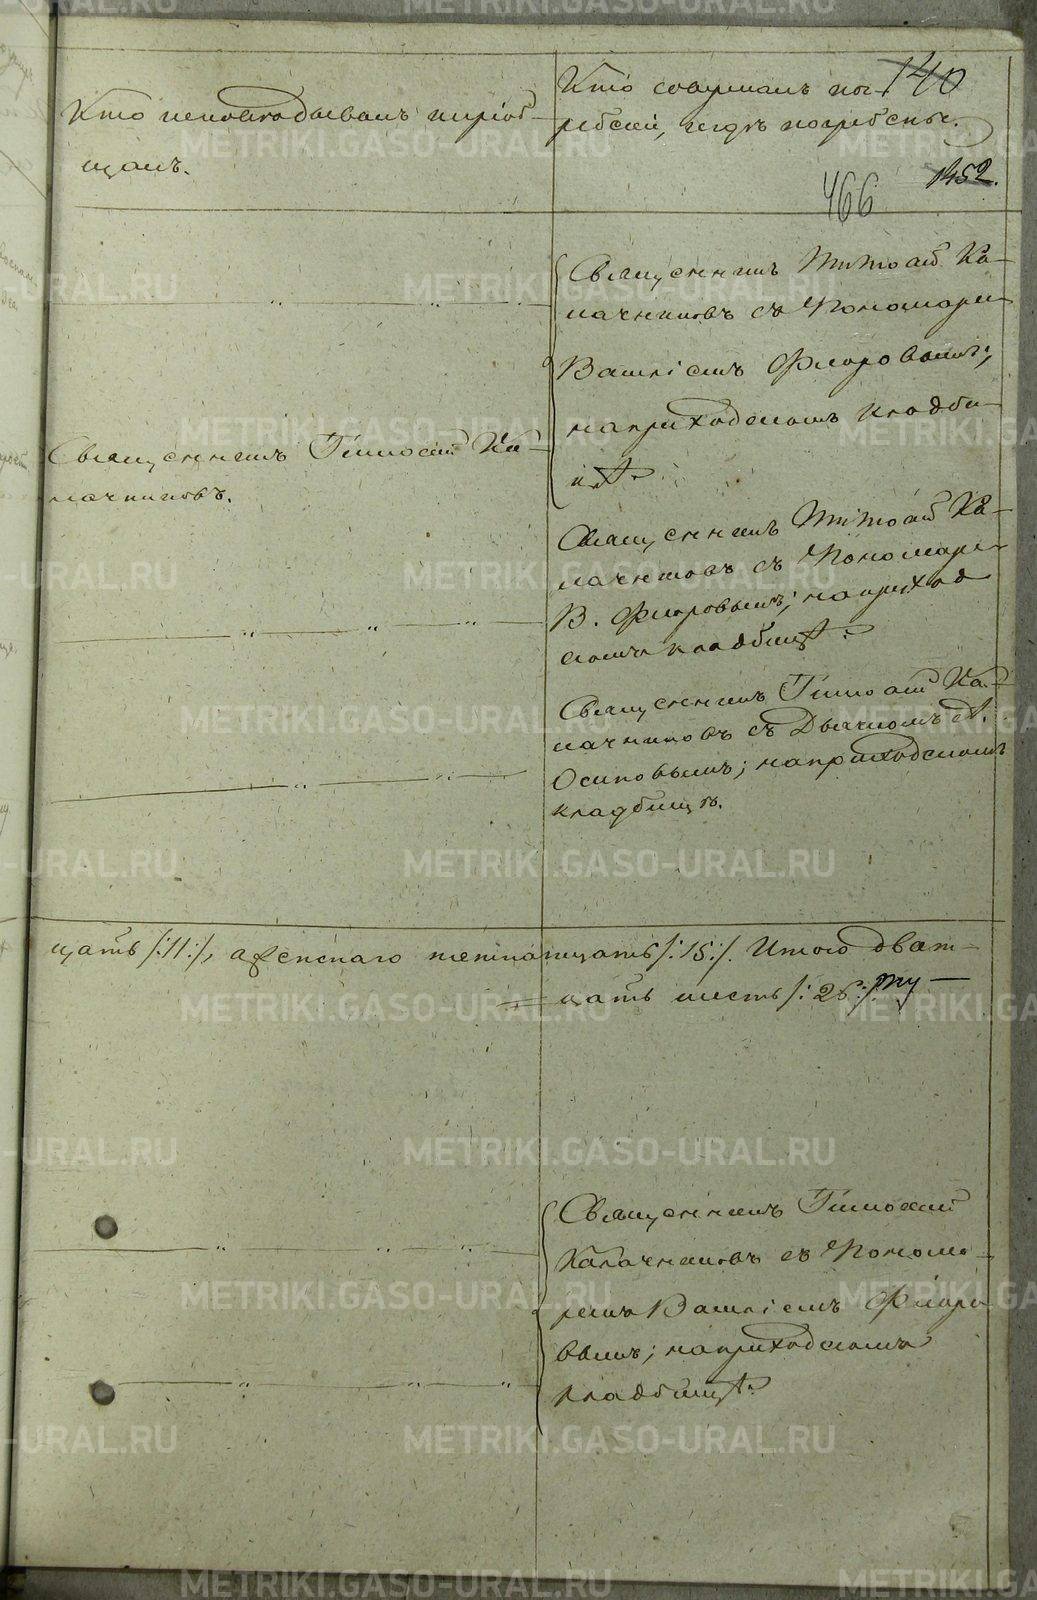 Кто исповѣдывалъ и пріоб-
щалъ.
Кто совершалъ пог-
ребеніе, и гдѣ погребены.
140
1452.
466
Священникъ Тимоѳей Ка-
лачниковъ съ Пономаремъ
Василіемъ Флоровымъ;
на приходскомъ кладби-
щѣ.
Священникъ Тимоѳей Ка-
лачниковъ.
Священникъ Тимоѳей Ка-
лачниковъ съ Пономаремъ
В. Флоровымъ; на приход
скомъ кладбищѣ.
Священникъ Тимоѳей Ка-
лачниковъ съ Дьячкомъ
Осиповымъ; на приходскомъ
кладбищѣ.
цать /:11:/, а женскаго пятнатцать /:15:/. Итого дват-
цать шесть /:26:/
Священникъ Тимоѳей
Калачниковъ съ Понома-
ремъ Василіемъ Флоро-
вымъ; на приходскомъ
кладбищѣ.
METRIKI.GASO-URAL.RU